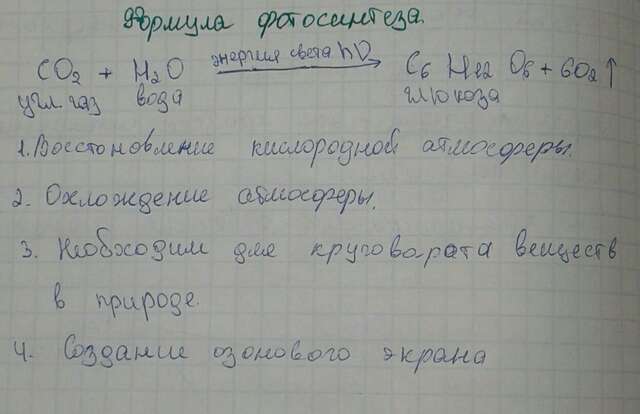 Формула фотосинтеза.
CO₂ + H₂O энергия света hν → C₆ H₁₂ O₆ + 6O₂↑
угл. газ вода глюкоза
1. Восстоновление кислородной атмосферы.
2. Охлождение атмосферы.
3. Необходим для круговарата веществ
в природе.
4. Создание озонового экрана